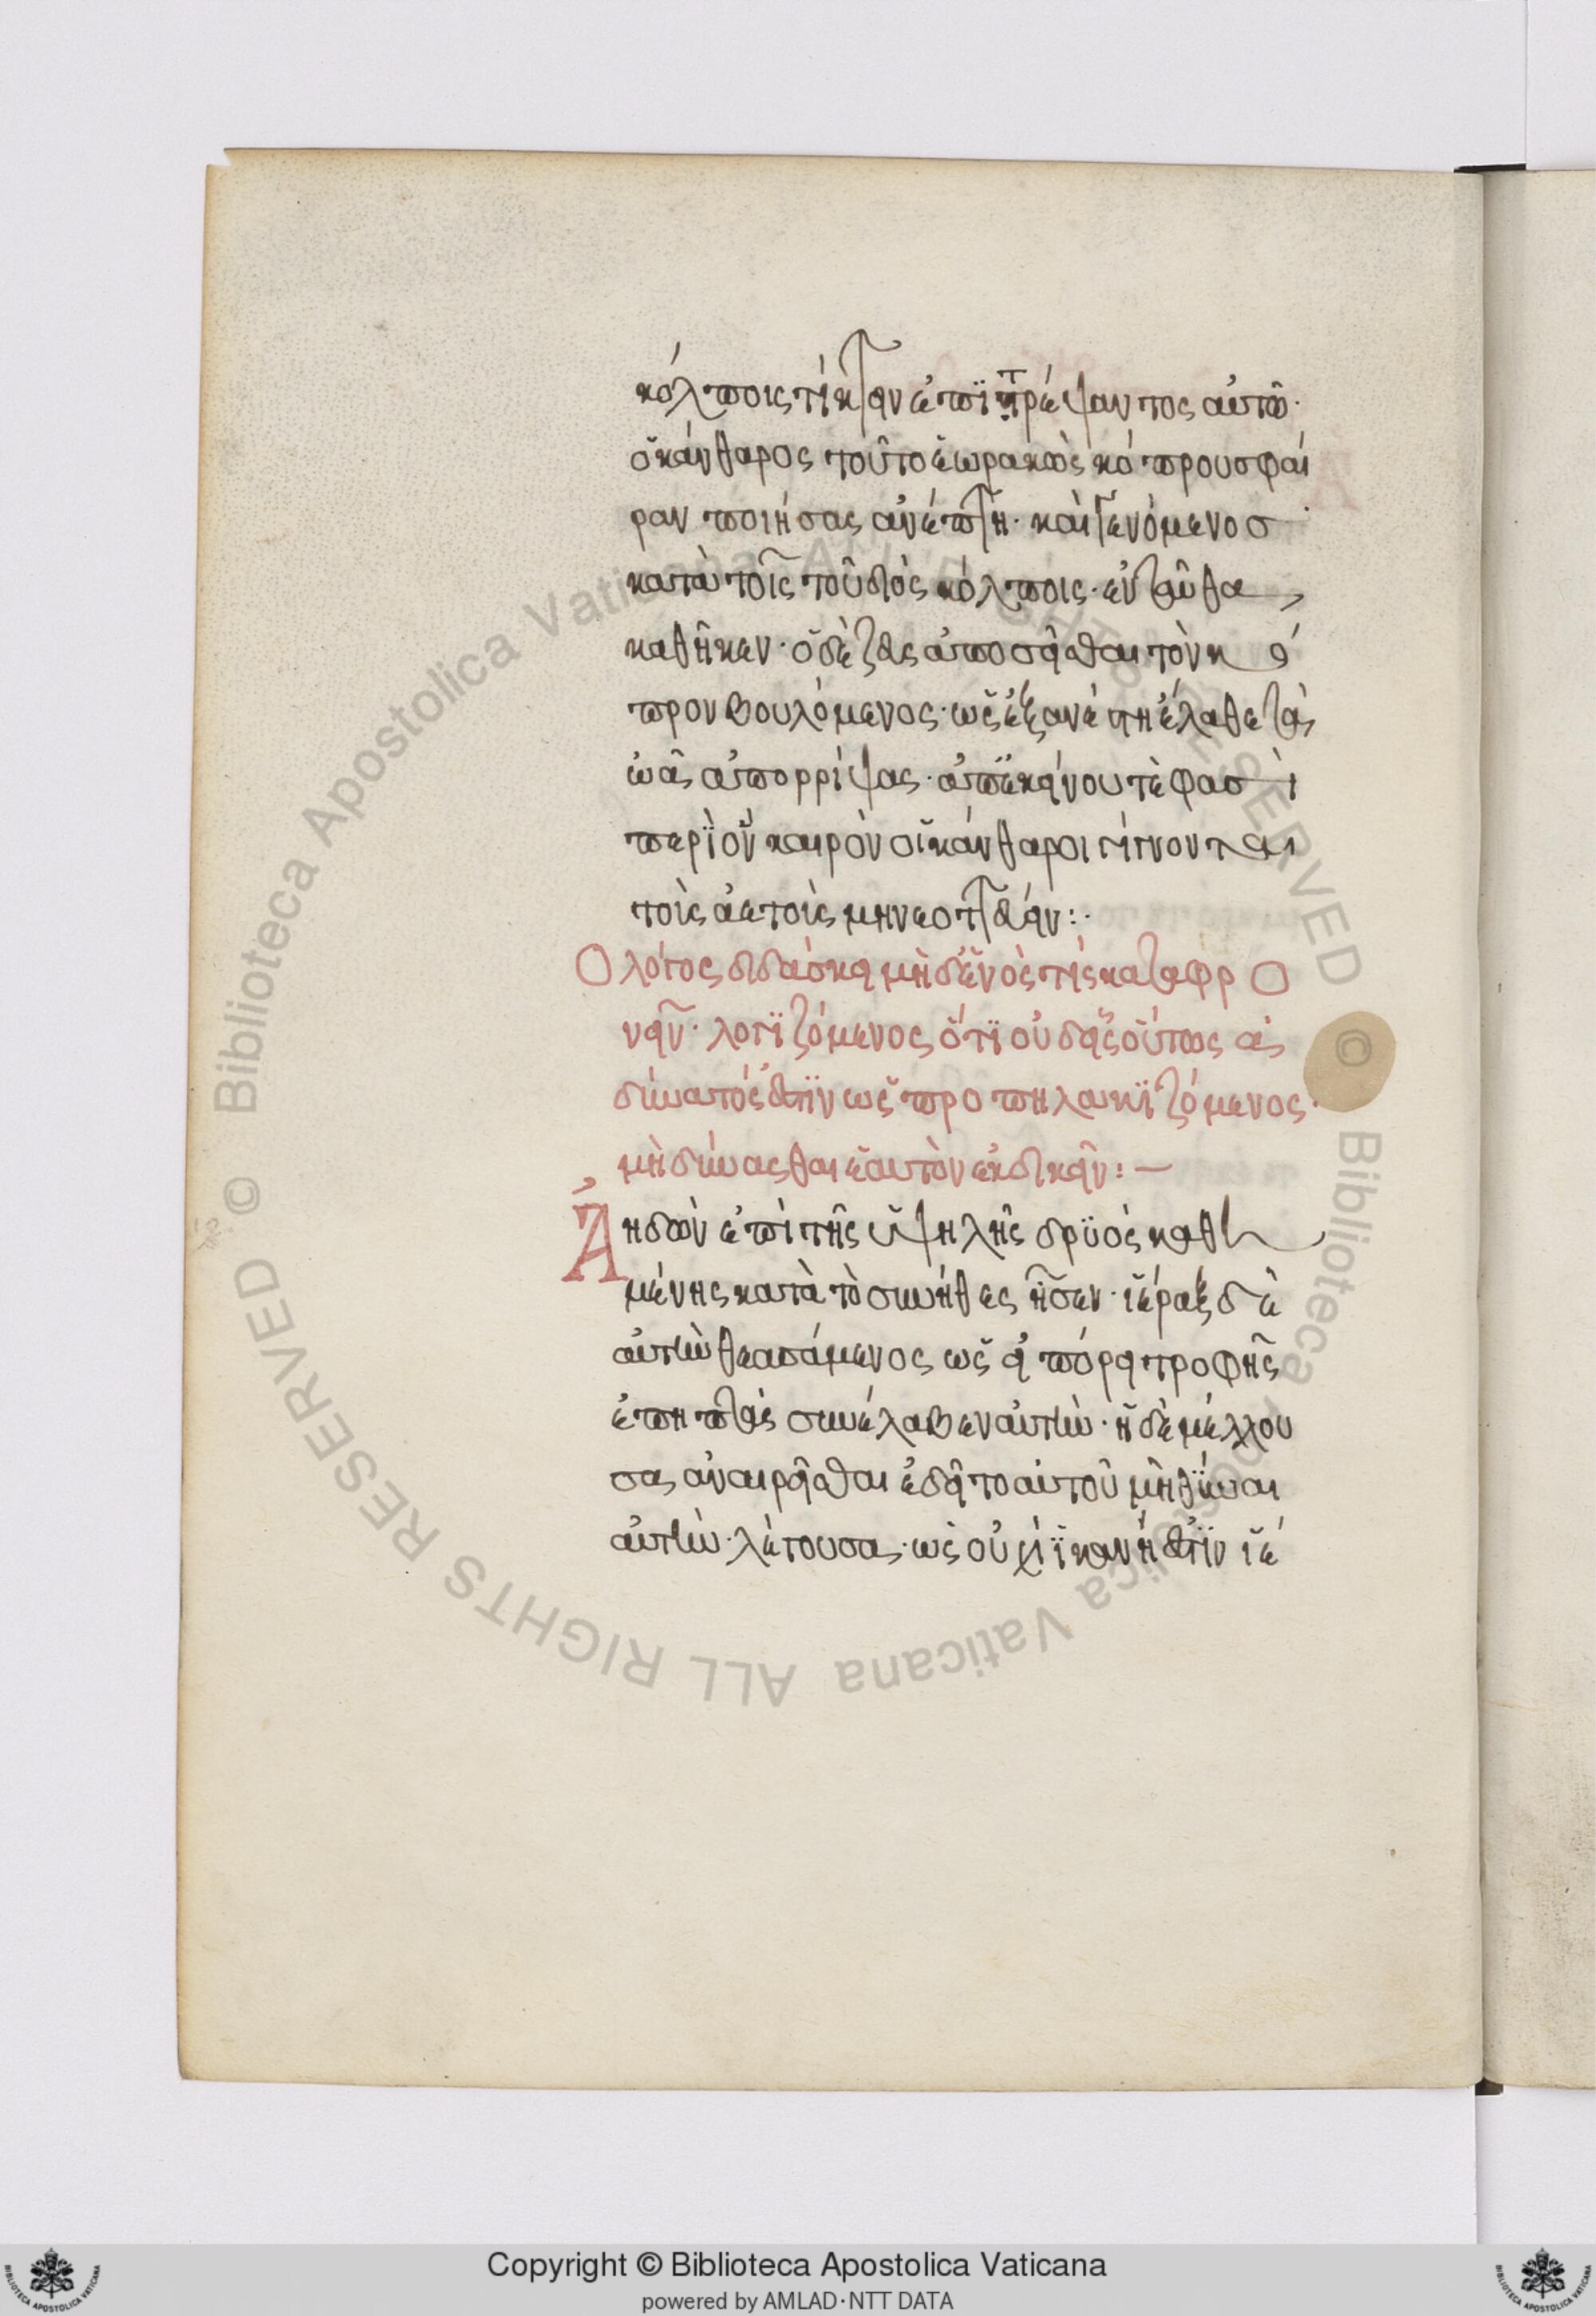 κόλποις τίκτειν ἐπιτρέψαντος αὐτῶ·
ὁ κάνθαρος τοῦτο ἑωρακὼς κόπρου σφαί
ραν ποιήσας ἀνέπτη· καὶ γενόμενος
κατὰ τοῖς τοῦ διὸς κόλποις· ἐνταῦθα
καθῆκεν· ὁ δὲ ζεὺς ἀποσείσασθαι τὸν κό
προν βουλόμενος· ὡς ἐξανέστη ἔλαθε τὰ
ὠὰ ἀπορρίψας· ἀπ' ἐκείνου τέ φασὶ
περὶ ὃν καιρὸν οἱ κάνθαροι γίγνονται
τοὺς ἀετοὺς μὴ νεοττεύειν:·
Ὁ λόγος διδάσκει μηδενὸς τίς καταφρο
νεῖν· λογιζόμενος ὅτι οὐδεὶς οὕτως ἀ
δύνατός ἐστιν ὡς προπηλακιζόμενος·
μὴ δύνασθαι ἑαυτὸν ἐκδικεῖν:—
Ἀηδὼν ἐπὶ τῆς ὑψηλῆς δρυὸς καθη
μένης κατὰ τὸ σύνηθες ᾖσεν· ἱέραξ δὲ
αὐτὴν θεασάμενος ὡς ἠπόρει τροφῆς
ἐπηπτὰς συνέλαβεν αὐτήν· ἡ δὲ μέλλου
σα ἀναιρεῖσθαι ἐδεῖτο αὐτοῦ μὴ θῦσαι
αὐτήν· λέγουσα· ὡς οὐχὶ ἱκανή ἐστιν ἱέ
Copyright © Biblioteca Apostolica Vaticana
powered by AMLAD·NTT DATA